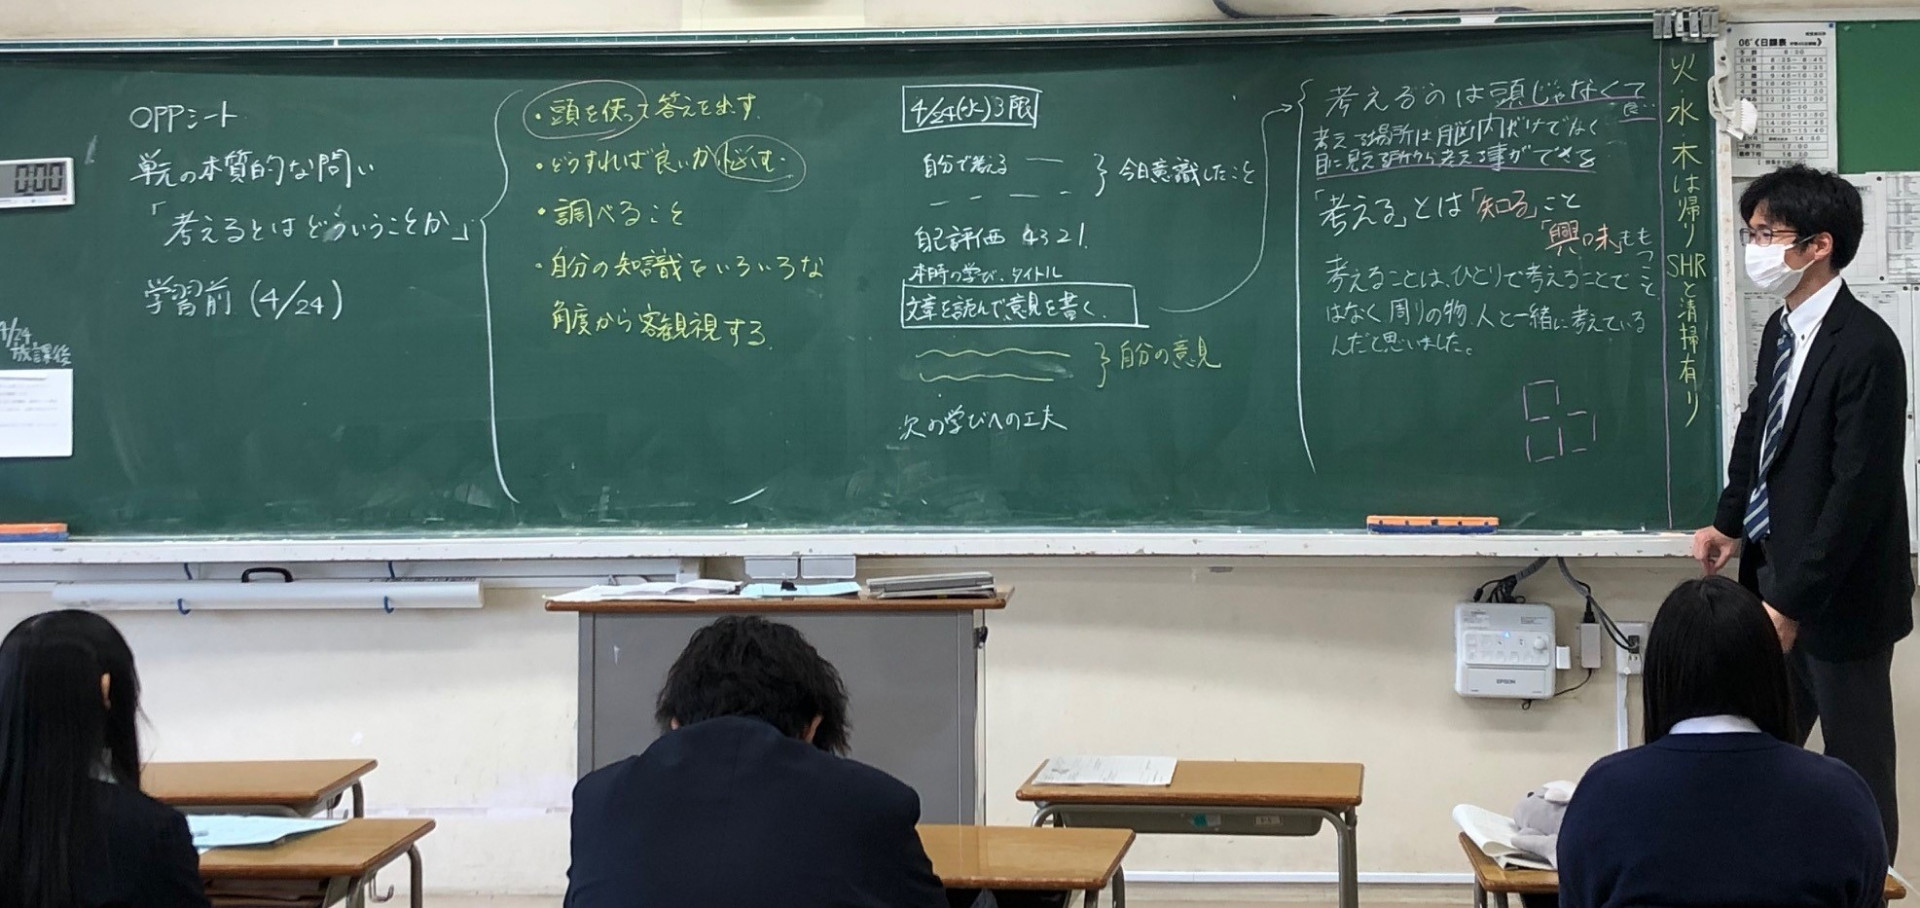 OPPシート
単元の本質的な問い
「考えるとはどういうことか」
学習前 (4/24)
4/24
放課後
0:00
・頭を使って答えを出す.
・どうすれば良いか悩む.
・調べること
・自分の知識をいろいろな
角度から客観視する.
4/24(水)3限
自分で考える
今日意識したこと
自己評価 4321.
本時の学び、タイトル
文章を読んで意見を書く.
自分の意見
次の学びへの工夫
考えるのは頭じゃなくて
良い
考える場所は脳内だけでなく
目に見える所から考える事ができる
「考える」とは「知る」こと
「興味」をもつこと
考えることは、ひとりで考えることで
はなく周りの物、人と一緒に考えている
んだと思いました。
火・水・木は帰りSHRと清掃有り
06'《日課表
EPSON